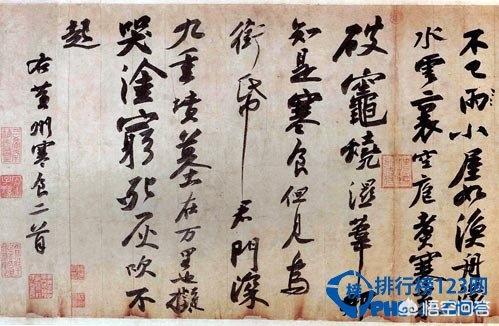 不已雨小屋如漁舟濛
水雲裏空庖煮寒菜
破竈燒濕葦那
知是寒食但見烏
銜帋君門深
九重墳墓在万里也擬
哭塗窮死灰吹不
起
右黄州寒食二首
排行榜123网
悟空问答